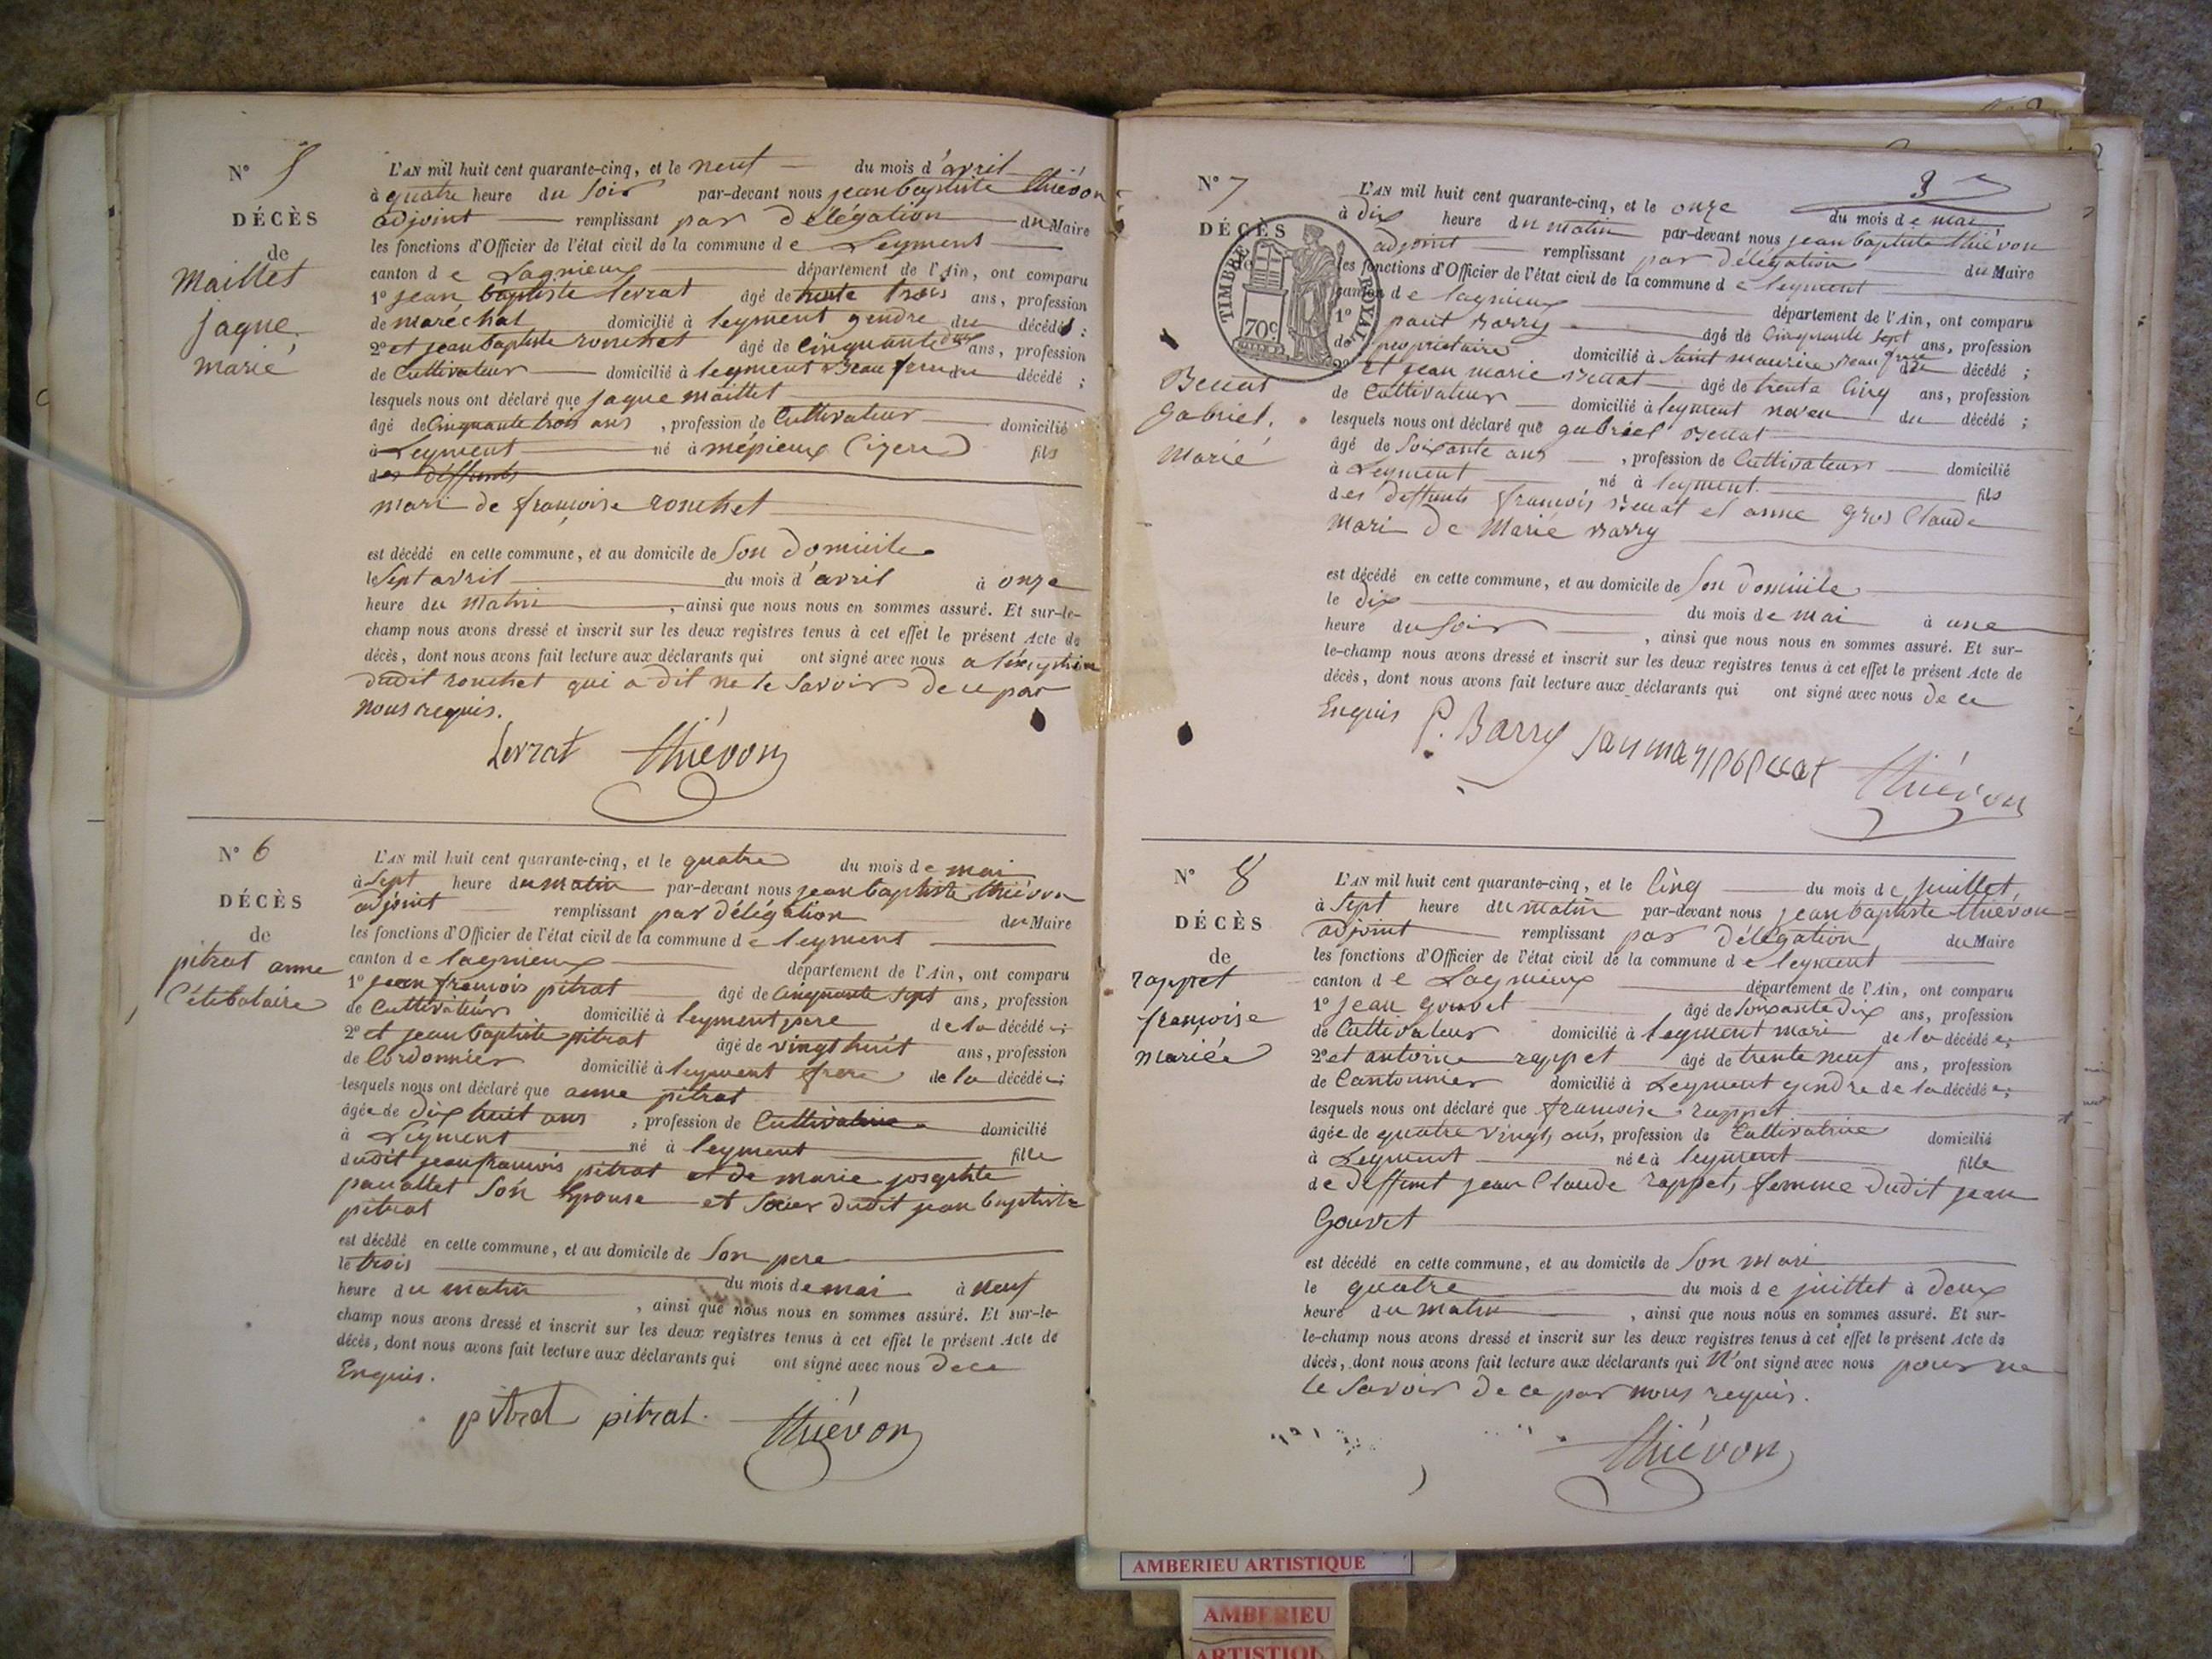 N° 5
DÉCÈS
de
Maillet
jaque
marié
L'AN mil huit cent quarante-cinq, et le neuf du mois d'avril
à quatre heure du Soir par-devant nous jean baptiste thiévon
adjoint remplissant par délégation du Maire
les fonctions d'Officier de l'état civil de la commune de Leyment
canton de Lagnieux département de l'Ain, ont comparu
1° jean baptiste levrat âgé de trente trois ans, profession
de maréchal domicilié à leyment gendre du décédé ;
2° et jean baptiste ronchet âgé de cinquante deux ans, profession
de Cultivateur domicilié à leyment Beau frere du décédé ;
lesquels nous ont déclaré que jaque maillet
âgé de Cinquante trois ans , profession de Cultivateur domicilié
à Leyment né à mépieux (izere) fils
des deffunts
mari de françoise ronchet
est décédé en cette commune, et au domicile de Son domicile
le Sept avril du mois d'avril à onze
heure du Matin , ainsi que nous nous en sommes assuré. Et sur-le-
champ nous avons dressé et inscrit sur les deux registres tenus à cet effet le présent Acte de
décès, dont nous avons fait lecture aux déclarants qui ont signé avec nous a l'exeption
dudit ronchet qui a dit ne le Savoir de ce par
nous requis.
Levrat thiévon
N° 6
DÉCÈS
de
pitrat anne
Célibataire
L'AN mil huit cent quarante-cinq, et le quatre du mois de mai
à Sept heure du matin par-devant nous jean baptiste thiévon
adjoint remplissant par délégation du Maire
les fonctions d'Officier de l'état civil de la commune de leyment
canton de lagnieux département de l'Ain, ont comparu
1° jean françois pitrat âgé de Cinquante Sept ans, profession
de Cultivateur domicilié à leyment pere de la décédée ;
2° et jean baptiste pitrat âgé de vingt huit ans, profession
de Cordonnier domicilié à leyment frere de la décédée ;
lesquels nous ont déclaré que anne pitrat
âgée de dix huit ans , profession de Cultivatrice domicilié
à Leyment né à leyment fille
dudit jean françois pitrat et de marie josephte
paccallet Son Epouse et Soeur dudit jean baptiste
pitrat
est décédé en cette commune, et au domicile de Son pere
le trois du mois de mai à neuf
heure du matin , ainsi que nous nous en sommes assuré. Et sur-le-
champ nous avons dressé et inscrit sur les deux registres tenus à cet effet le présent Acte de
décès, dont nous avons fait lecture aux déclarants qui ont signé avec nous de ce
Enquis.
pitrat pitrat. thiévon
3
N° 7
DÉCÈS
TIMBRE ROYAL
70c
Benat
gabriel.
Marié
L'AN mil huit cent quarante-cinq, et le onze du mois de mai
à dix heure du matin par-devant nous jean baptiste thiévon
adjoint remplissant par délégation du Maire
les fonctions d'Officier de l'état civil de la commune de leyment
canton de lagnieux département de l'Ain, ont comparu
1° paul Barry âgé de Cinquante Sept ans, profession
de propriétaire domicilié à Saint maurice Beau frere du décédé ;
2° et jean marie Benat âgé de trente Cinq ans, profession
de Cultivateur domicilié à leyment neveu du décédé ;
lesquels nous ont déclaré que gabriel Benat
âgé de Soixante ans , profession de Cultivateur domicilié
à Leyment né à leyment fils
des deffunts françois Benat et anne gros Claude
mari de Marie Barry
est décédé en cette commune, et au domicile de Son domicile
le dix du mois de mai à une
heure du Soir , ainsi que nous nous en sommes assuré. Et sur-
le-champ nous avons dressé et inscrit sur les deux registres tenus à cet effet le présent Acte de
décès, dont nous avons fait lecture aux déclarants qui ont signé avec nous de ce
Enquis
P. Barry thiévon
N° 8
DÉCÈS
de
rappet
françoise
mariée
L'AN mil huit cent quarante-cinq, et le Cinq du mois de juillet
à Sept heure du matin par-devant nous jean baptiste thiévon
adjoint remplissant par délégation du Maire
les fonctions d'Officier de l'état civil de la commune de leyment
canton de Lagnieux département de l'Ain, ont comparu
1° jean gouvet âgé de Soixante Dix ans, profession
de Cultivateur domicilié à leyment mari de la décédée ;
2° et antoine rappet âgé de trente neuf ans, profession
de Cantonnier domicilié à Leyment gendre de la décédée ;
lesquels nous ont déclaré que françoise rappet
âgée de quatre vingts ans, profession de Cultivatrice domicilié
à Leyment née à leyment fille
de deffunt jean Claude rappet, femme dudit jean
Gouvet
est décédé en cette commune, et au domicile de Son mari
le quatre du mois de juillet à deux
heure du matin , ainsi que nous nous en sommes assuré. Et sur-
le-champ nous avons dressé et inscrit sur les deux registres tenus à cet effet le présent Acte de
décès, dont nous avons fait lecture aux déclarants qui N'ont signé avec nous pour ne
le Savoir de ce par nous requis.
thiévon
AMBERIEU ARTISTIQUE
AMBERIEU